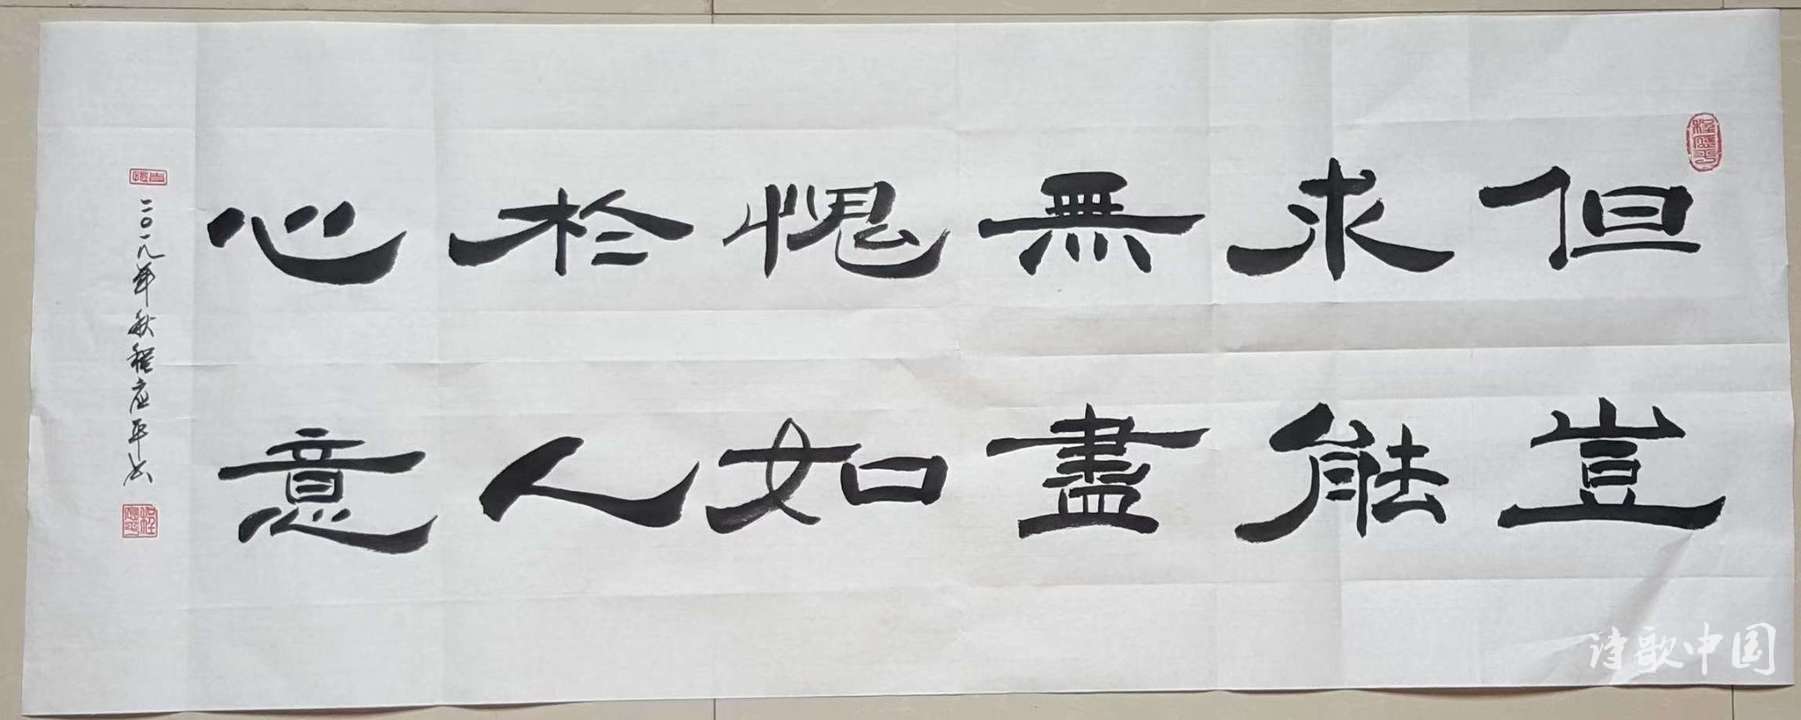 但求無愧於心
豈能盡如人意
二〇一九年秋程应平书
诗歌中国